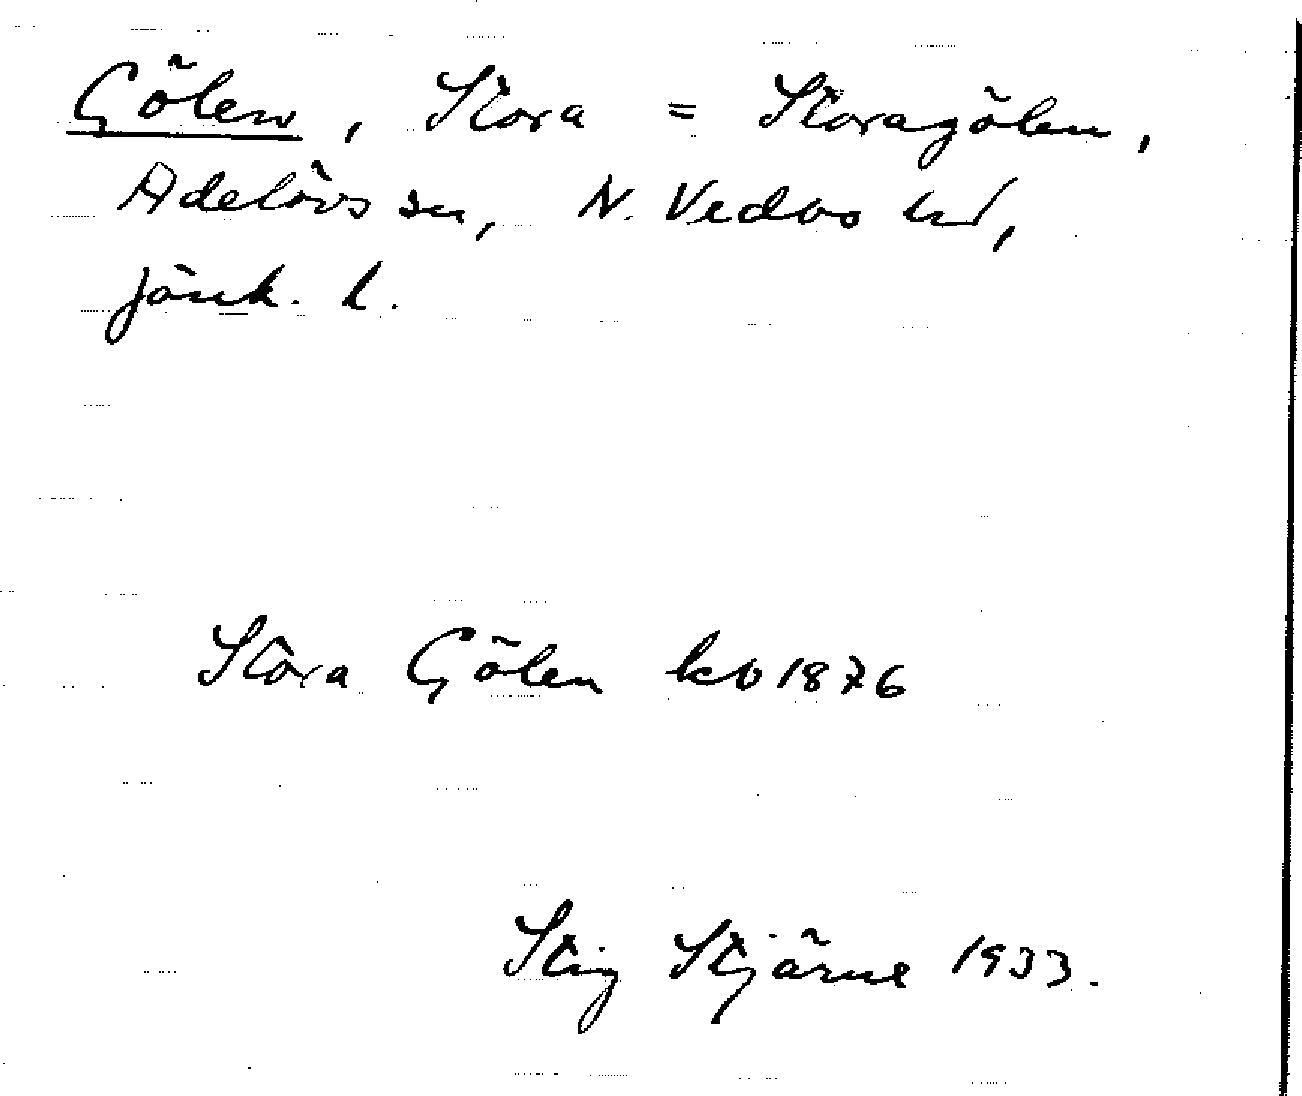 Gölen, Stora = Storagölen,
Adelövs sn, N. Vedbo hd,
Jönk. l.
Stora Gölen kb 1876
Stig Stjärne 1933.